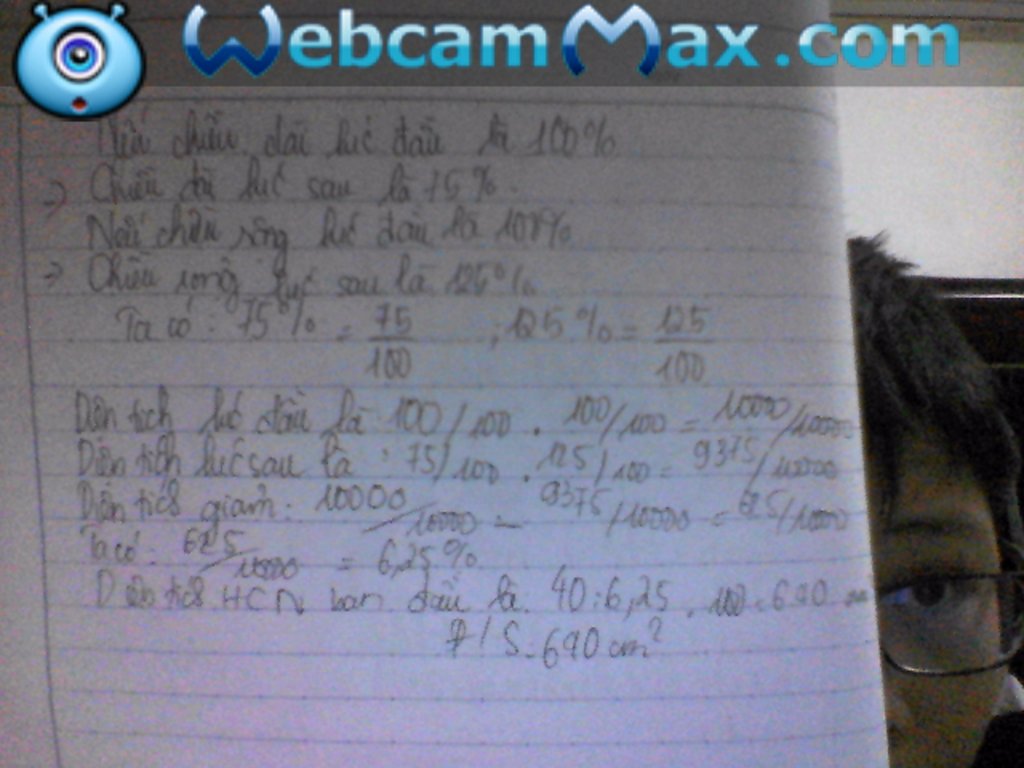 WebcamMax.com
Nếu chiều dài lúc đầu là 100%
=> Chiều dài lúc sau là 75%.
Nếu chiều rộng lúc đầu là 100%
=> Chiều rộng lúc sau là 125%
Ta có: 75% = 75/100 ; 125% = 125/100
Diện tích lúc đầu là 100/100 . 100/100 = 10000/10000
Diện tích lúc sau là : 75/100 . 125/100 = 9375/10000
Diện tích giảm: 10000/10000 - 9375/10000 = 625/10000
Ta có: 625/10000 = 6,25%
Diện tích HCN ban đầu là 40:6,25 . 100 = 640
Đ/S = 640 cm²